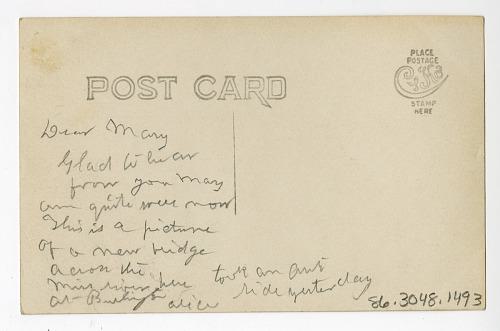 PLACE
POSTAGE
STAMP
HERE
POST CARD
Dear Mary
Glad to hear
from you Mary
am quite well now
This is a picture
of a new bridge
across the
Miss river here
at
took an
ride yesterday
Alice
86.3048.1493